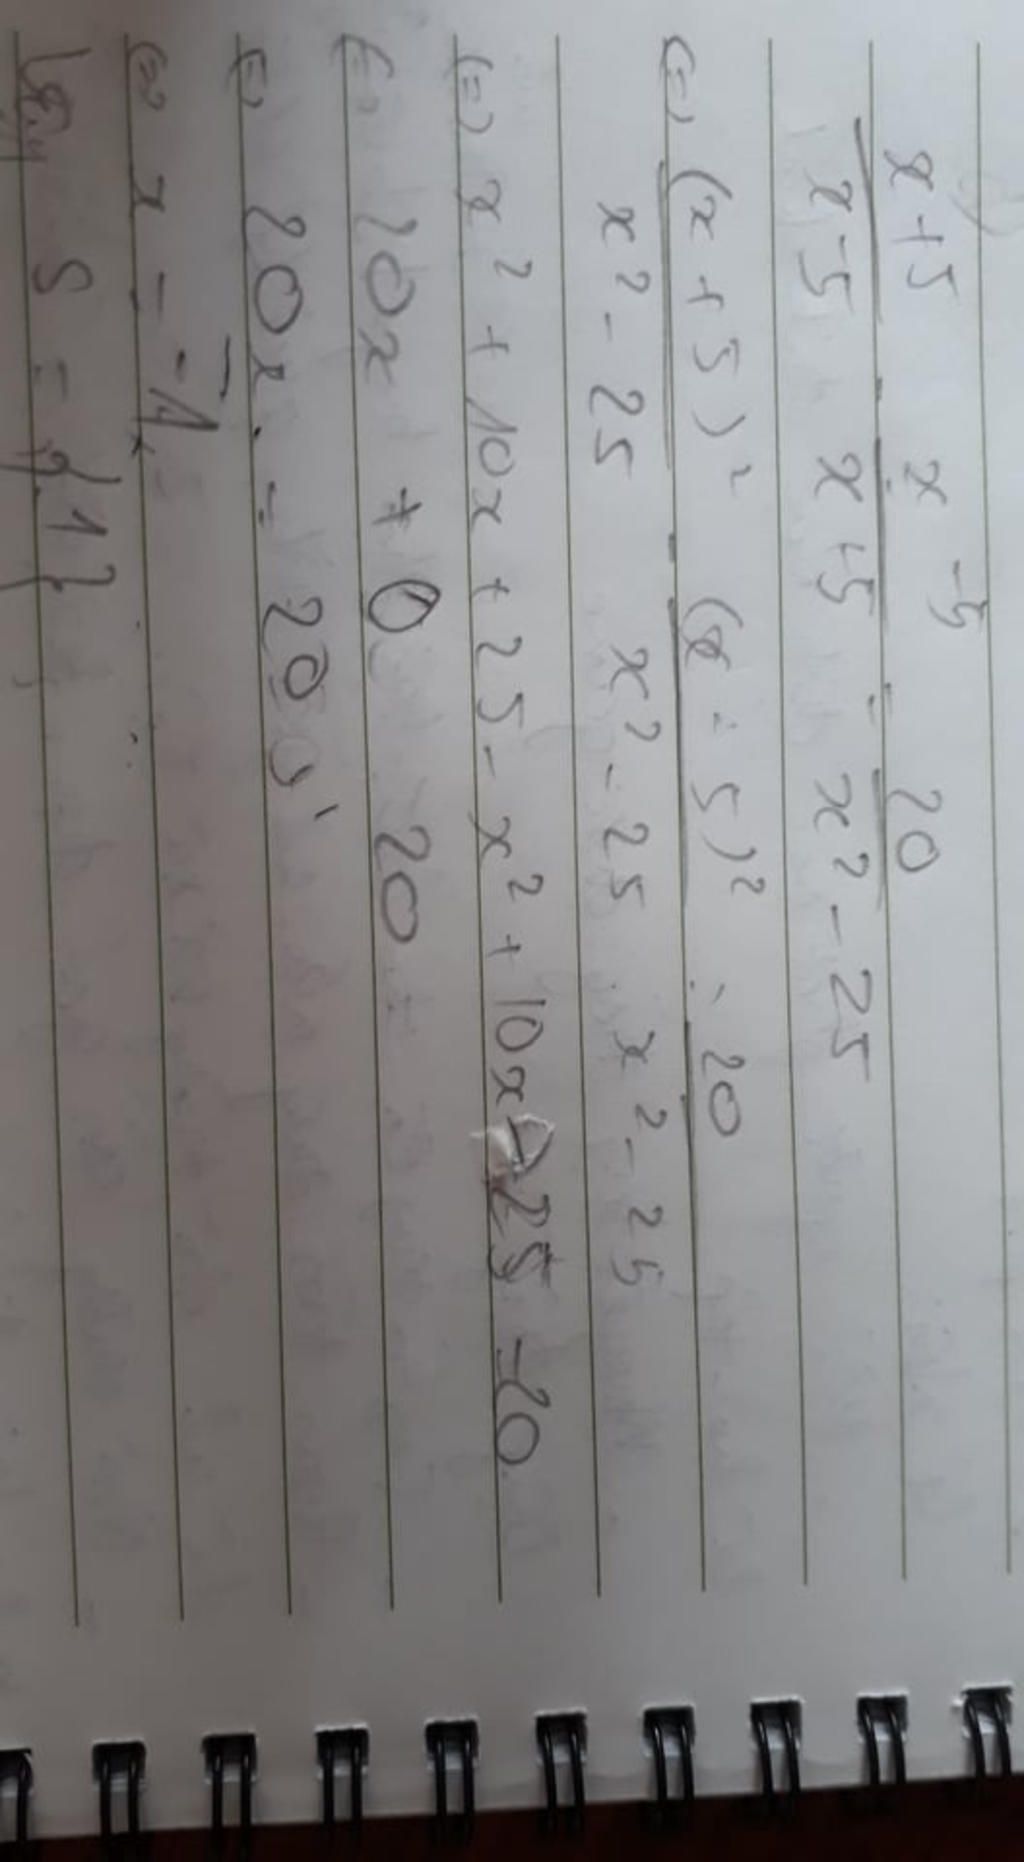 x+5 x-5 20
x-5 - x+5 = x² - 25
(=) (x + 5)² - (x - 5)² = 20
x² - 25 x² - 25 x² - 25
(=) x² + 10x + 25 - x² + 10x - 25 = 20
(=) 20x + 0 = 20
(=) 20x = 20
(=) x = 1
Vậy S = {1}